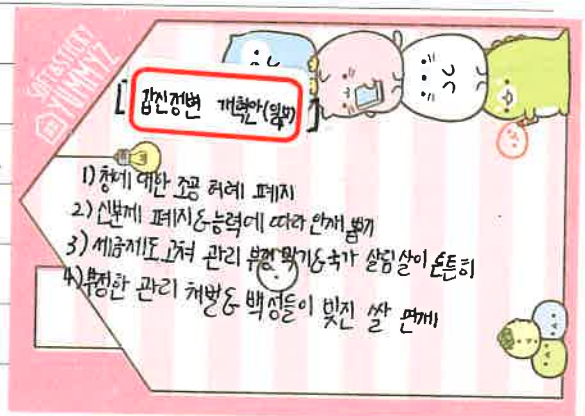 SOFT&STICKY
YUMMYZ
[ 갑신정변 개혁안(일부) ]
1) 청에 대한 조공 허례 폐지
2) 신분제 폐지&능력에 따라 인재 뽑기
3) 세금제도 고쳐 관리 부정 막기&국가 살림살이 튼튼히
4) 부정한 관리 처벌& 백성들이 빚진 쌀 면제